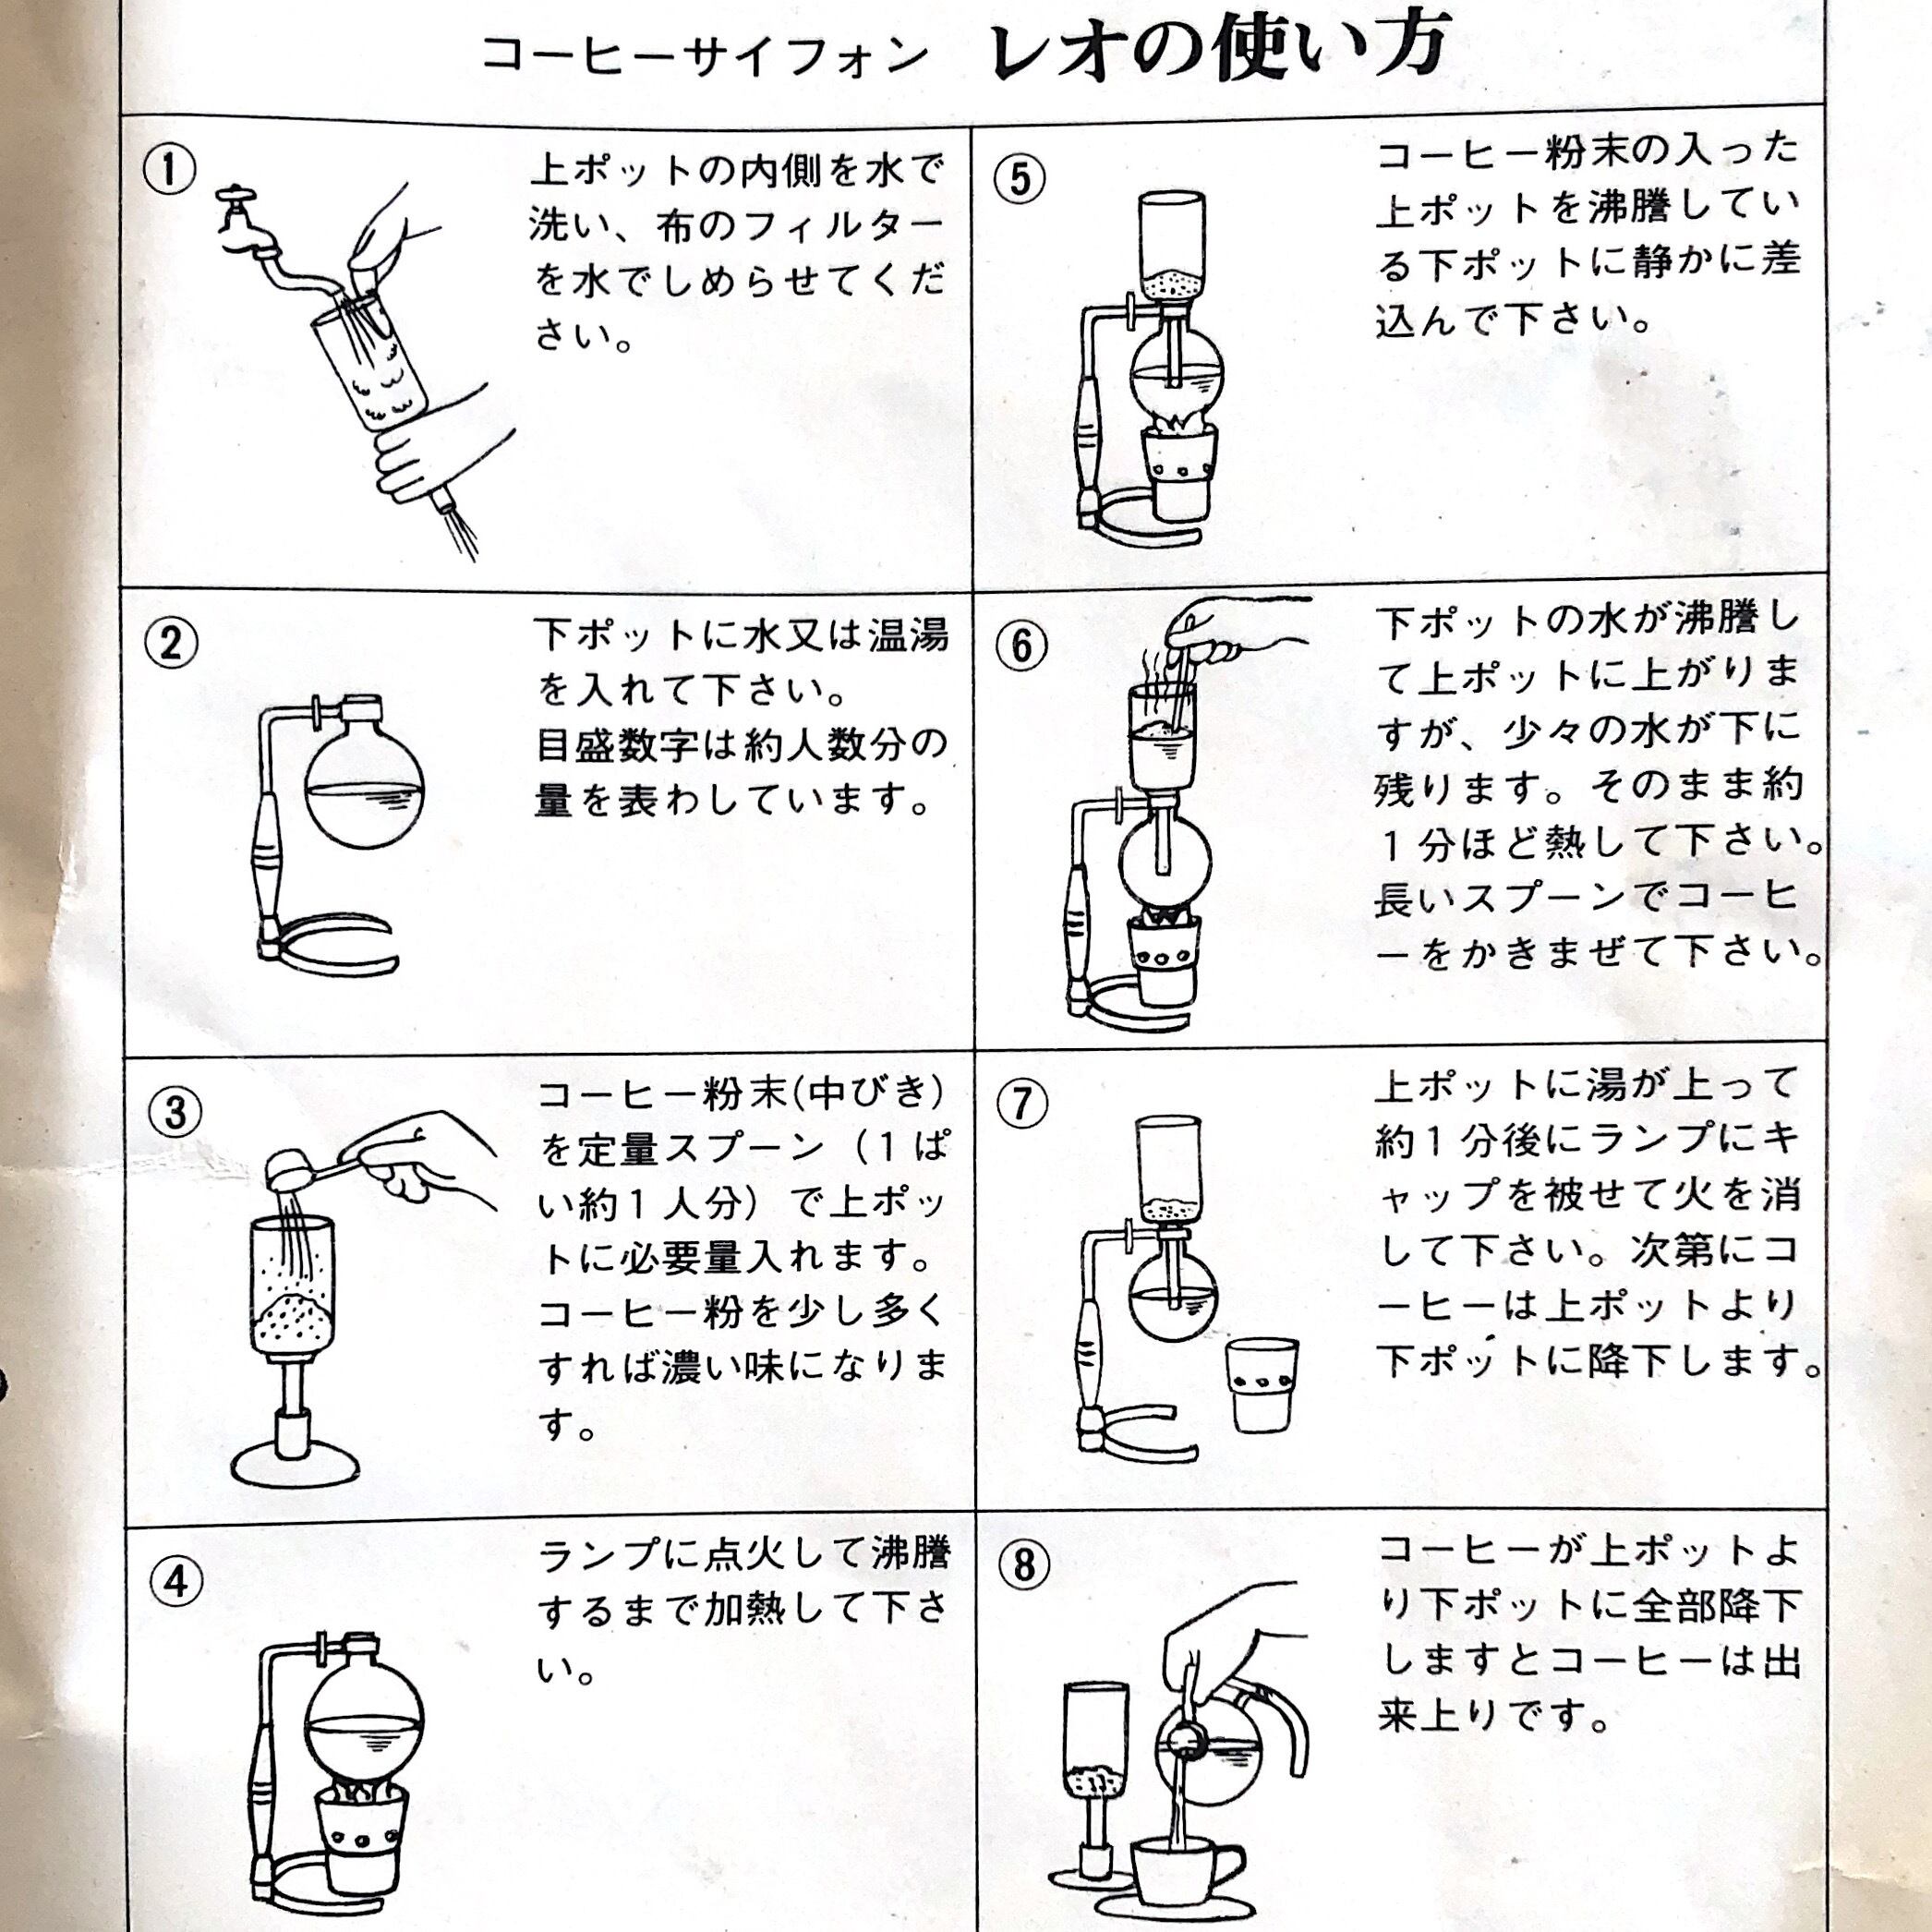 コーヒーサイフォン レオの使い方
①
上ポットの内側を水で
洗い、布のフィルター
を水でしめらせてくだ
さい。
②
下ポットに水又は温湯
を入れて下さい。
目盛数字は約人数分の
量を表わしています。
③
コーヒー粉末(中びき)
を定量スプーン（1ぱ
い約1人分）で上ポッ
トに必要量入れます。
コーヒー粉を少し多く
すれば濃い味になりま
す。
④
ランプに点火して沸騰
するまで加熱して下さ
い。
⑤
コーヒー粉末の入った
上ポットを沸騰してい
る下ポットに静かに差
込んで下さい。
⑥
下ポットの水が沸騰し
て上ポットに上がりま
すが、少々の水が下に
残ります。そのまま約
1分ほど熱して下さい。
長いスプーンでコーヒ
ーをかきまぜて下さい。
⑦
上ポットに湯が上って
約1分後にランプにキ
ャップを被せて火を消
して下さい。次第にコ
ーヒーは上ポットより
下ポットに降下します。
⑧
コーヒーが上ポットよ
り下ポットに全部降下
しますとコーヒーは出
来上りです。